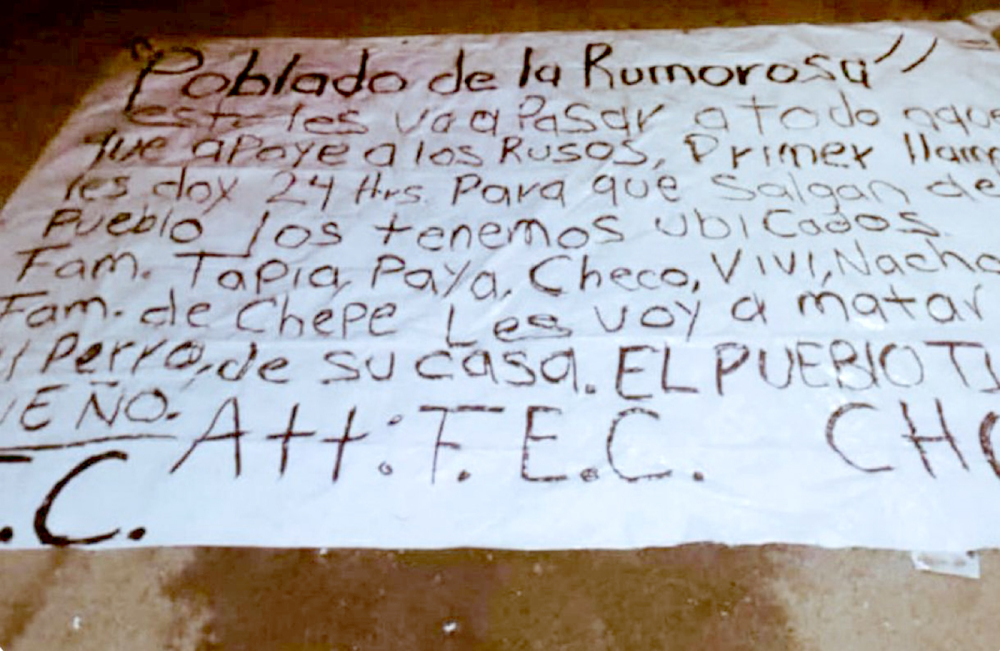 "Poblado de la Rumorosa"
esto les va a Pasar a todo aque
que apoye a los Rusos, Primer llam
les doy 24 Hrs Para que Salgan de
Pueblo los tenemos ubicados.
Fam. Tapia, Paya, Checo, Vivi, Nacho
Fam. de Chepe Les voy a matar
Perro, de su casa. EL PUEBlO TI
EÑO. Att: T.E.C. CHO
.C.